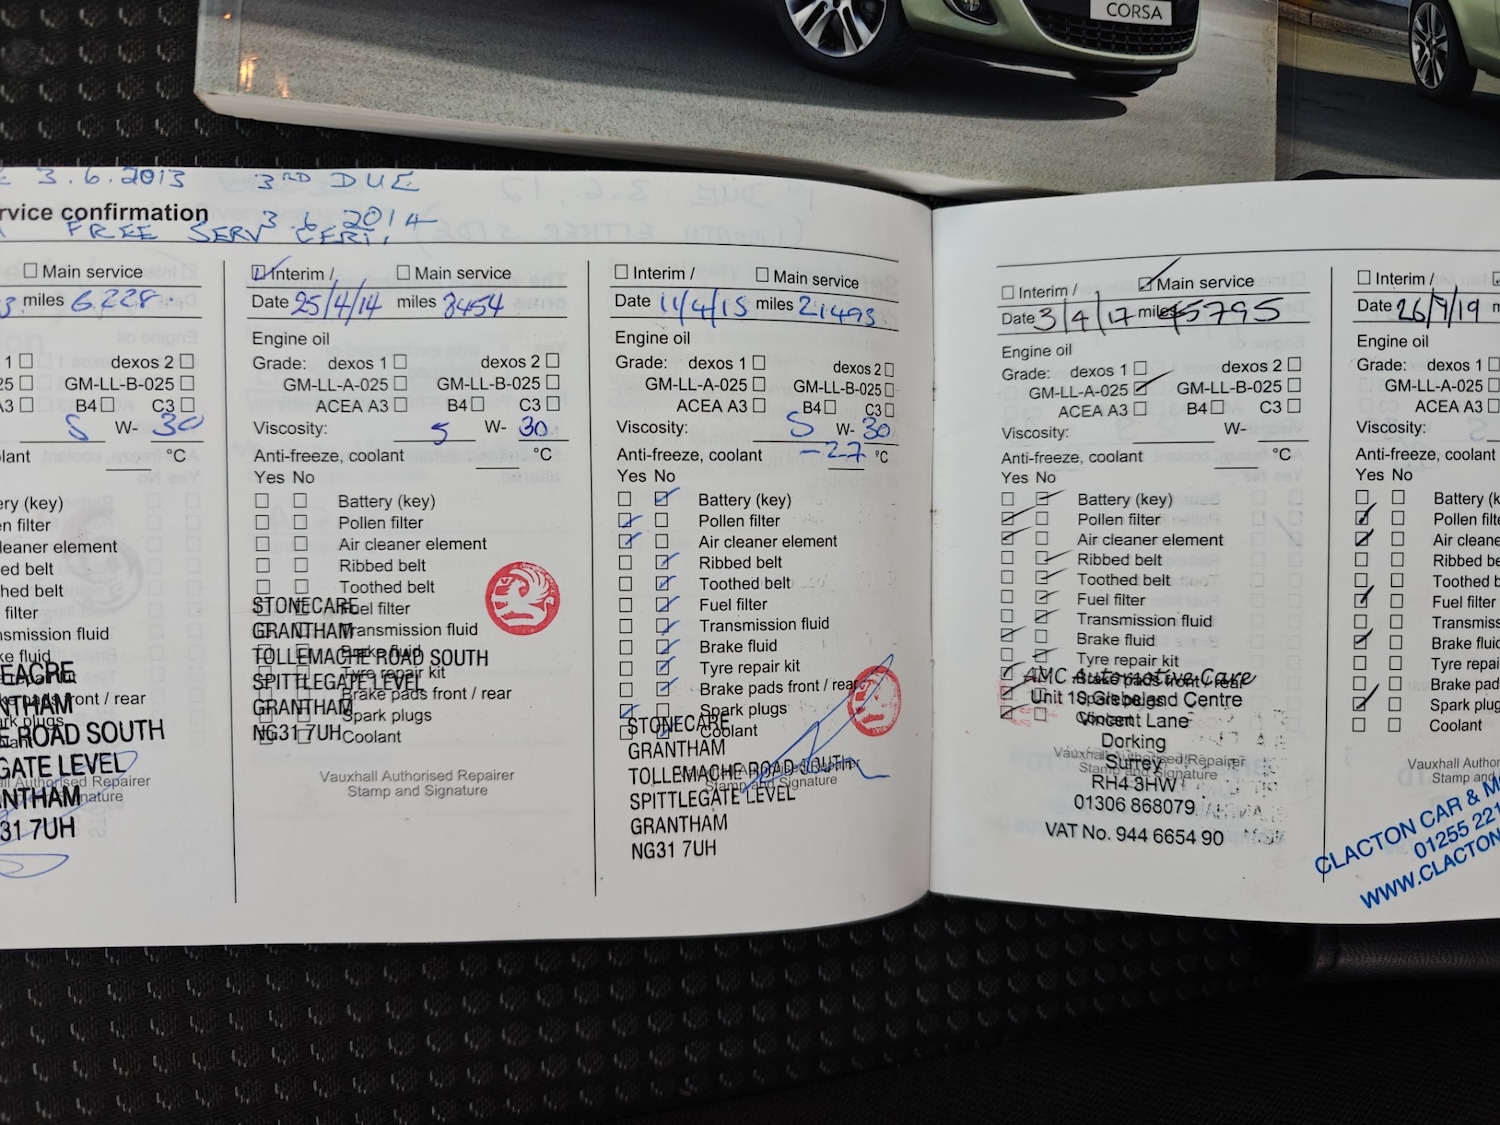 CORSA
3.6.2013 3RD DUE
rvice confirmation 3.6.2014
FREE SERV CERT.
Main service
miles 6.228.
dexos 2
GM-LL-B-025
B4 C3
5 W- 30
°C
ery (key)
en filter
leaner element
ed belt
hed belt
filter
nsmission fluid
ke fluid
EACRE
front / rear
NTHAM
ark plugs
E ROAD SOUTH
GATE LEVEL
all Authorised Repairer
NTHAM
31 7UH
Interim / Main service
Date 25/4/14 miles 8454
Engine oil
Grade: dexos 1 dexos 2
GM-LL-A-025 GM-LL-B-025
ACEA A3 B4 C3
Viscosity: 5 W- 30
Anti-freeze, coolant °C
Yes No
Battery (key)
Pollen filter
Air cleaner element
Ribbed belt
Toothed belt
Fuel filter
Transmission fluid
Brake fluid
Tyre repair kit
Brake pads front / rear
Spark plugs
Coolant
STONECARE
GRANTHAM
TOLLEMACHE ROAD SOUTH
SPITTLEGATE LEVEL
GRANTHAM
NG31 7UH
Vauxhall Authorised Repairer
Stamp and Signature
Interim / Main service
Date 11/4/15 miles 21493
Engine oil
Grade: dexos 1 dexos 2
GM-LL-A-025 GM-LL-B-025
ACEA A3 B4 C3
Viscosity: 5 W- 30
Anti-freeze, coolant -27 °C
Yes No
Battery (key)
Pollen filter
Air cleaner element
Ribbed belt
Toothed belt
Fuel filter
Transmission fluid
Brake fluid
Tyre repair kit
Brake pads front / rear
Spark plugs
Coolant
STONECARE
GRANTHAM
TOLLEMACHE ROAD SOUTH
SPITTLEGATE LEVEL
GRANTHAM
NG31 7UH
Stamp and Signature
Interim / Main service
Date 3/4/17 miles 45795
Engine oil
Grade: dexos 1 dexos 2
GM-LL-A-025 GM-LL-B-025
ACEA A3 B4 C3
Viscosity: W-
Anti-freeze, coolant °C
Yes No
Battery (key)
Pollen filter
Air cleaner element
Ribbed belt
Toothed belt
Fuel filter
Transmission fluid
Brake fluid
Tyre repair kit
Brake pads front / rear
Spark plugs
Coolant
AMC Automotive Care
Unit 10 Glebeland Centre
Vincent Lane
Dorking
Surrey
RH4 3HW
01306 868079
VAT No. 944 6654 90
Vauxhall Authorised Repairer
Stamp and Signature
Interim /
Date 26/9/19
Engine oil
Grade: dexos 1
GM-LL-A-025
ACEA A3
Viscosity: 5
Anti-freeze, coolant
Yes No
Battery (k
Pollen filte
Air cleane
Ribbed be
Toothed b
Fuel filter
Transmiss
Brake fluid
Tyre repai
Brake pad
Spark plug
Coolant
Vauxhall Authoris
Stamp and
CLACTON CAR & M
01255 221
WWW.CLACTON